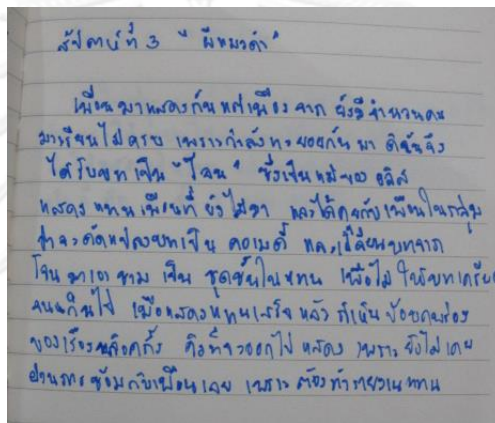 สัปดาห์ที่ 3 " ผีแมวดำ"
เพื่อนมาแสดงกัน แต่เนื่องจาก ยังมีจำนวนคน
มาเรียนไม่ครบ เพราะกำลังทะยอยกันมา ดิฉันจึง
ได้รับบทเป็น "โจน" ซึ่งเป็นแม่ของ อลิส
แสดง แทนเพื่อนที่ ยังไม่มา และได้คุยกับเพื่อนในกลุ่ม
ว่าจะดัดแปลงบทเป็น คอเมดี้ และเปลี่ยนบทจาก
โจน มาเอา ชาม เป็น ชุดชั้นในแทน เพื่อไม่ ให้บทเครียด
จนเกินไป เมื่อแสดงแทนเสร็จ แล้ว ก็เห็น ข้อบกพร่อง
ของเรื่อง คือที่เราออกไป แสดง เพราะ ยังไม่เคย
ผ่านการ ซ้อมกับเพื่อนเลย เพราะ ต้องทำ แทน